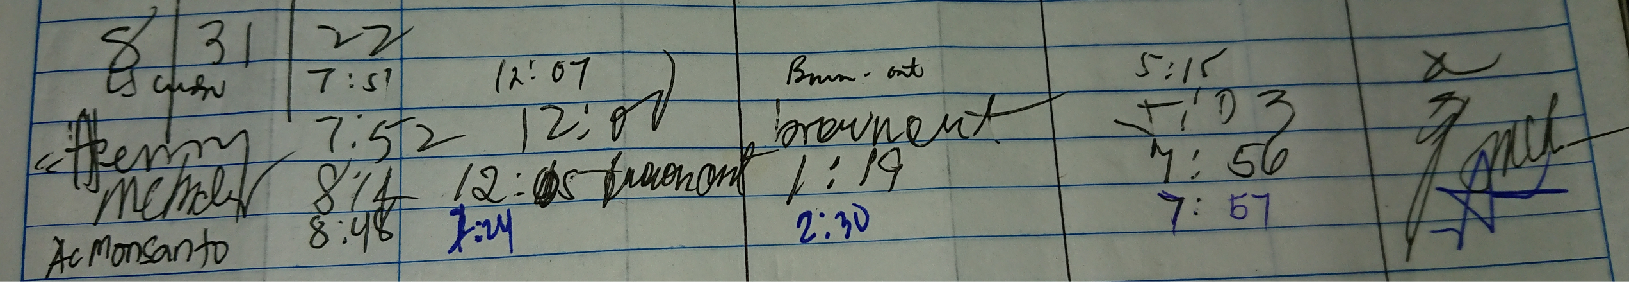 8 31 22
7:51 12:07 Brown-out 5:15
7:52 12:07 brownout 5:03
8:14 12:05 brownout 1:19 7:56
Ac Monsanto 8:48 1:24 2:30 7:57